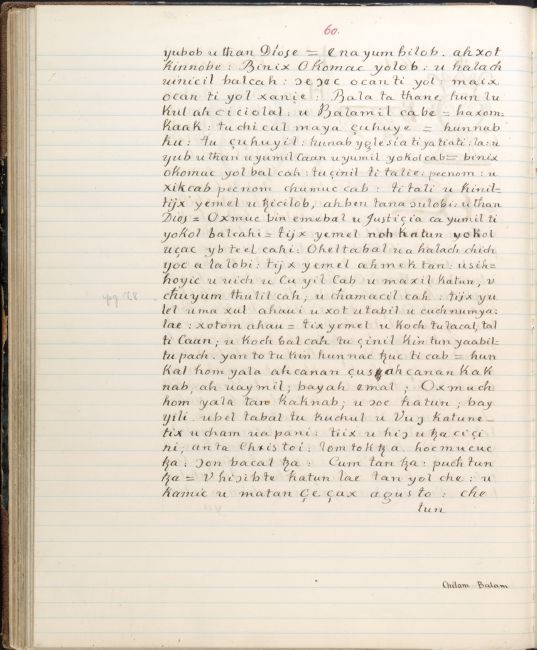 60.
yubob u than Diose = enayumbilob. ahxot
kinnobe: Binix Okomac yolob: u halach
uinicil balcah: ocanti yol: maix
ocan ti yol xanie: Bala ta thane hun lu
kul ah ciciolal: u Balamil cabe = haxom-
kaak: tu chicul maya çuhuye = hunnab
ku: tu çuhuyil: hunab yglesia ti yatiati: la: u
yub u than u yumil Caan u yumil yokolcab = binix
okomac yol bal cah: tuçinil ti talie: pecnom: u
xikcab pecnom chumuc cab: ti tali u kinil-
tijx yemel u ꜩicilob, ah ben tana u than
Dios = Oxmuc bin emebal u Justiçia ca yumil ti
yokol balcahi = tijx yemel noh katun yokol
uçac yb teel cahi: Oheltabal ua halach chich
yoc a lalobi: tijx yemel ah mektan: usik=
hoyic u uich u Cuyil Cab u maxil katun; v
chuyum thulil cah, u chamacil cah: tijx yu
lel uma xul ahaui u xot utabil u cuch numya:
lae: xotom ahau = tix yemel u Koch tulacal, tal
ti Caan; u koch balcah tu çinil kin tun yaabil-
tupach. yan to tu kin hunnac ꜩuc ti cab = hun
kal hom yala ahcanan çus, ahcanan kak
nab, ah uaymil; bayah emal; Oxmuch
hom yala tan kaknab; u ɔoc katun; bay
yili ubel tabal tu kuchul u Vuɔ katune-
tix ucham uapani: tiix u hiɔ
ni; anta Christoi: lom tok ꜩa, hocmucuc
ꜩa: ɔon bacal ꜩa: Cum tan ꜩa: puch tun
ꜩa = V hiɔibte katun lae tan yol che: u
kamic u matan Çe çax agusto: che
tun
pg 28
Chilam Balam